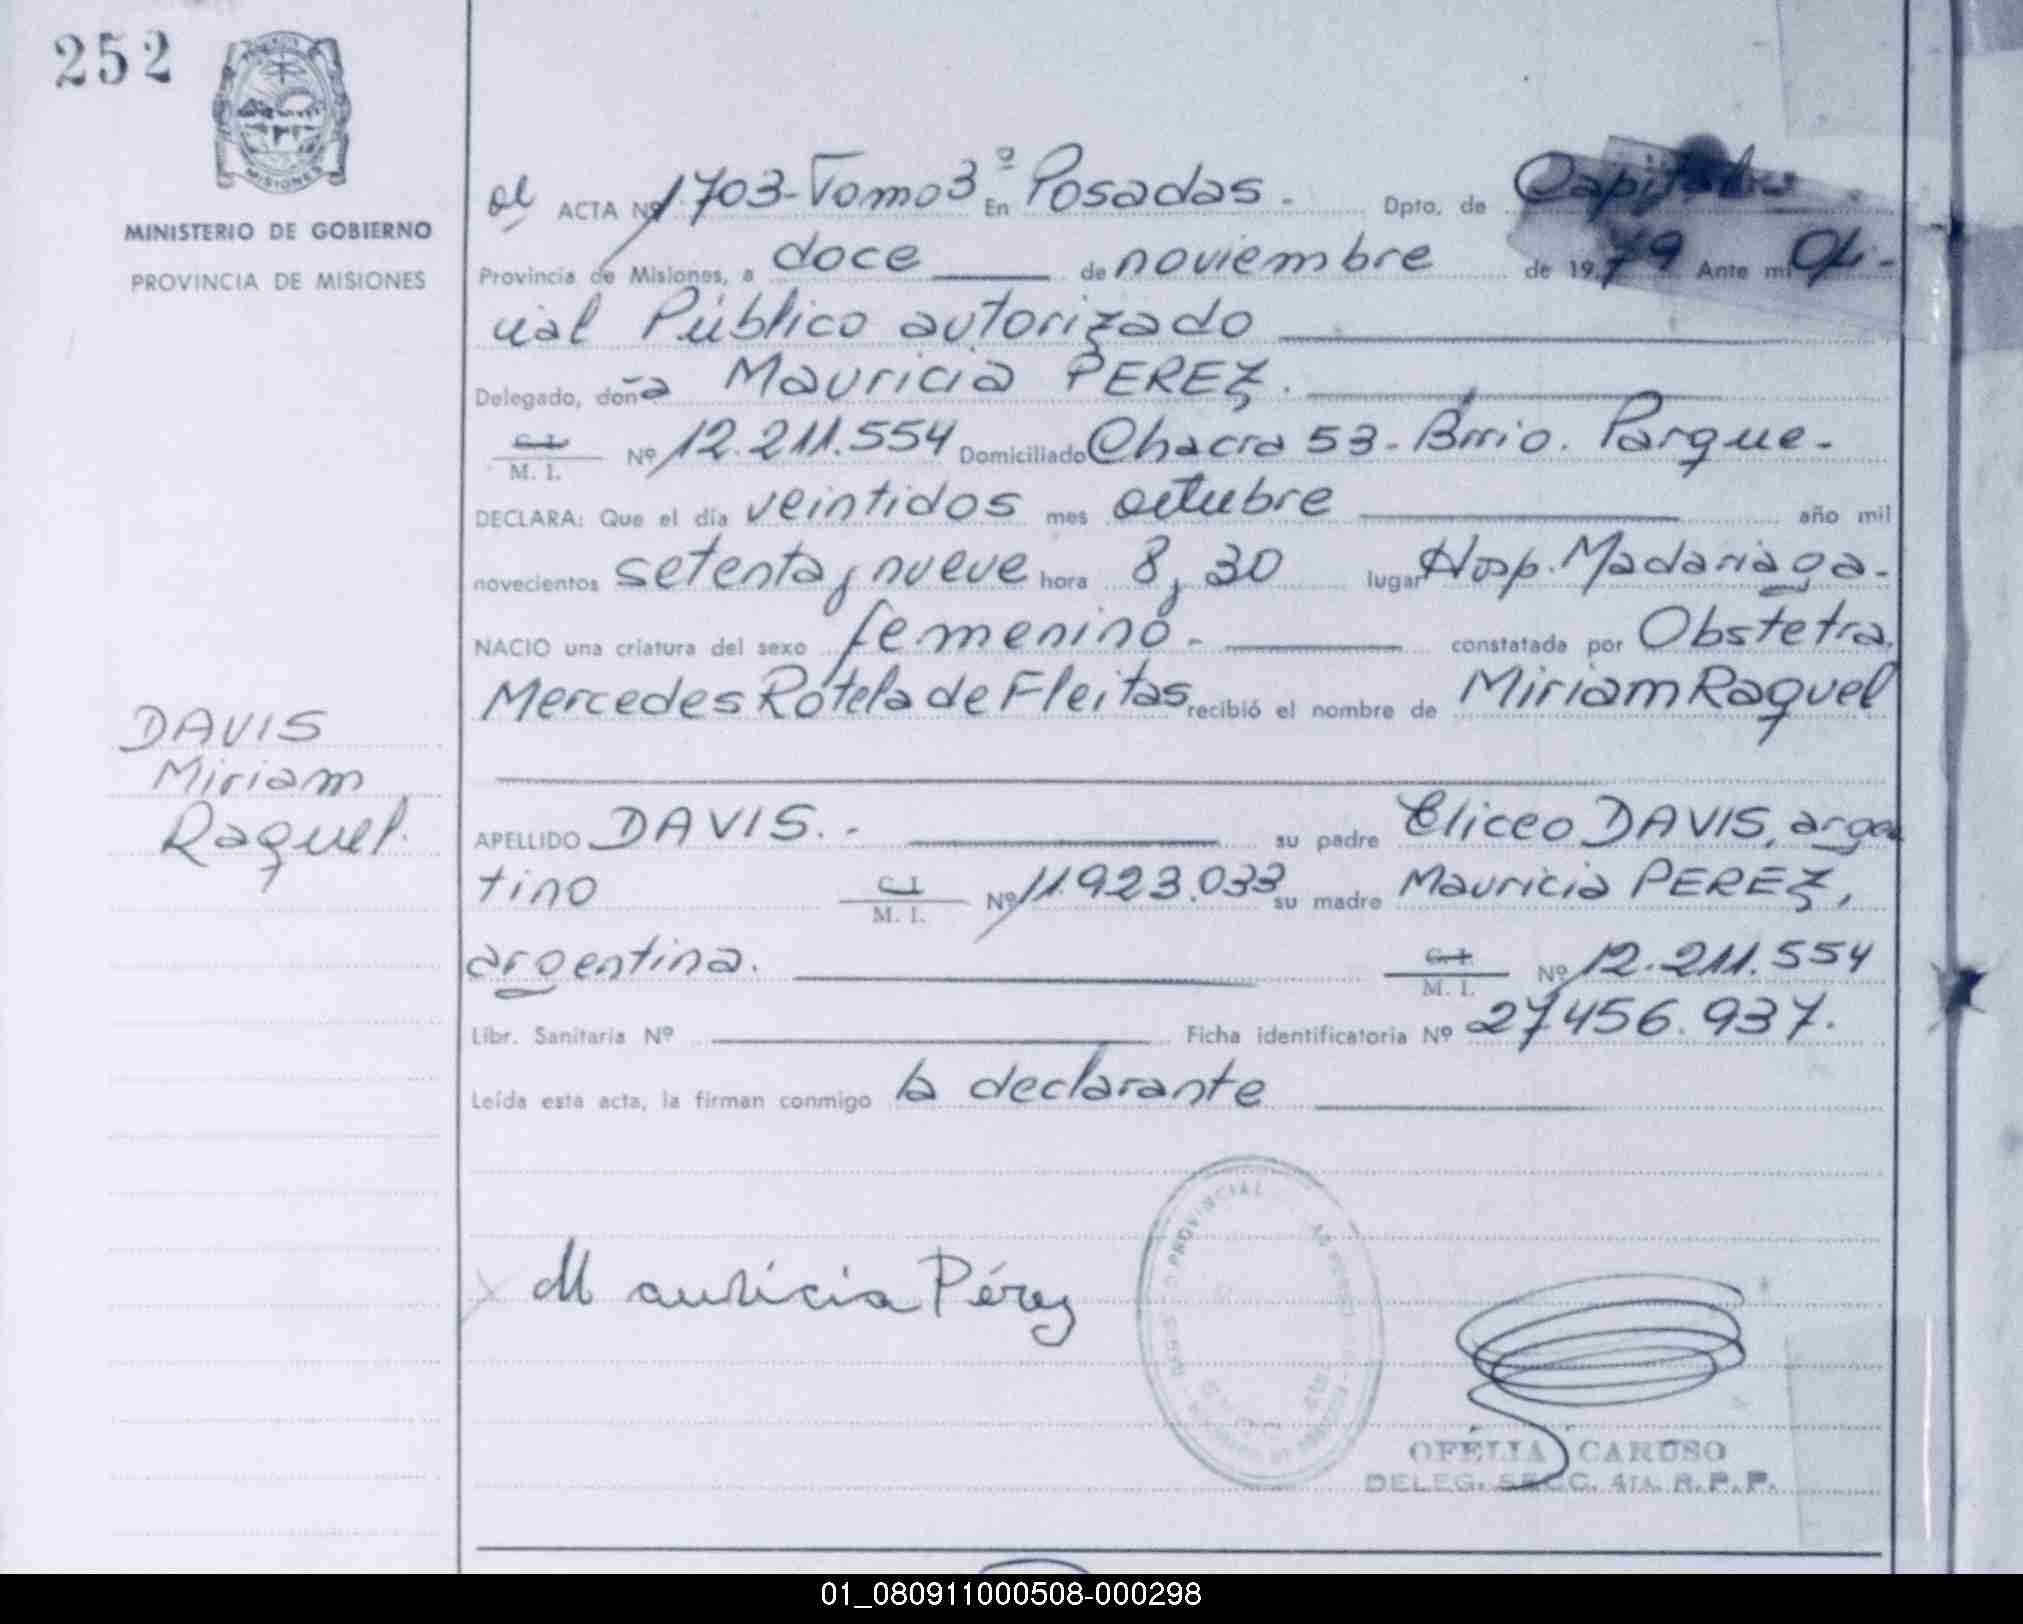 252
MISIONES
MINISTERIO DE GOBIERNO
PROVINCIA DE MISIONES
DAVIS
Miriam
Raquel.
ACTA Nº 1703-Tomo 3º En Posadas.- Dpto. de Capital
Provincia de Misiones, a doce de noviembre de 1979 Ante mi Ofi-
cial Público autorizado
Delegado, doña Mauricia PEREZ.
C. I.
M. I. Nº 12.211.554 Domiciliado Chacra 53-Brrio. Parque.-
DECLARA: Que el día veintidos mes octubre año mil
novecientos setenta y nueve hora 8,30 lugar Hosp. Madariaga.-
NACIO una criatura del sexo femenino.- constatada por Obstetra.
Mercedes Rotela de Fleitas recibió el nombre de Miriam Raquel
APELLIDO DAVIS..- su padre Eliceo DAVIS, argen
tino C. I.
M. I. Nº 11.923.033 su madre Mauricia PEREZ,
argentina. C. I.
M. I. Nº 12.211.554
Libr. Sanitaria Nº Ficha identificatoria Nº 27.456.937.
Leída esta acta, la firman conmigo la declarante
PROVINCIAL
Mauricia Pérez
OFELIA CARUSO
DELEG. SECC. 4TA. R. P. P.
01_080911000508-000298